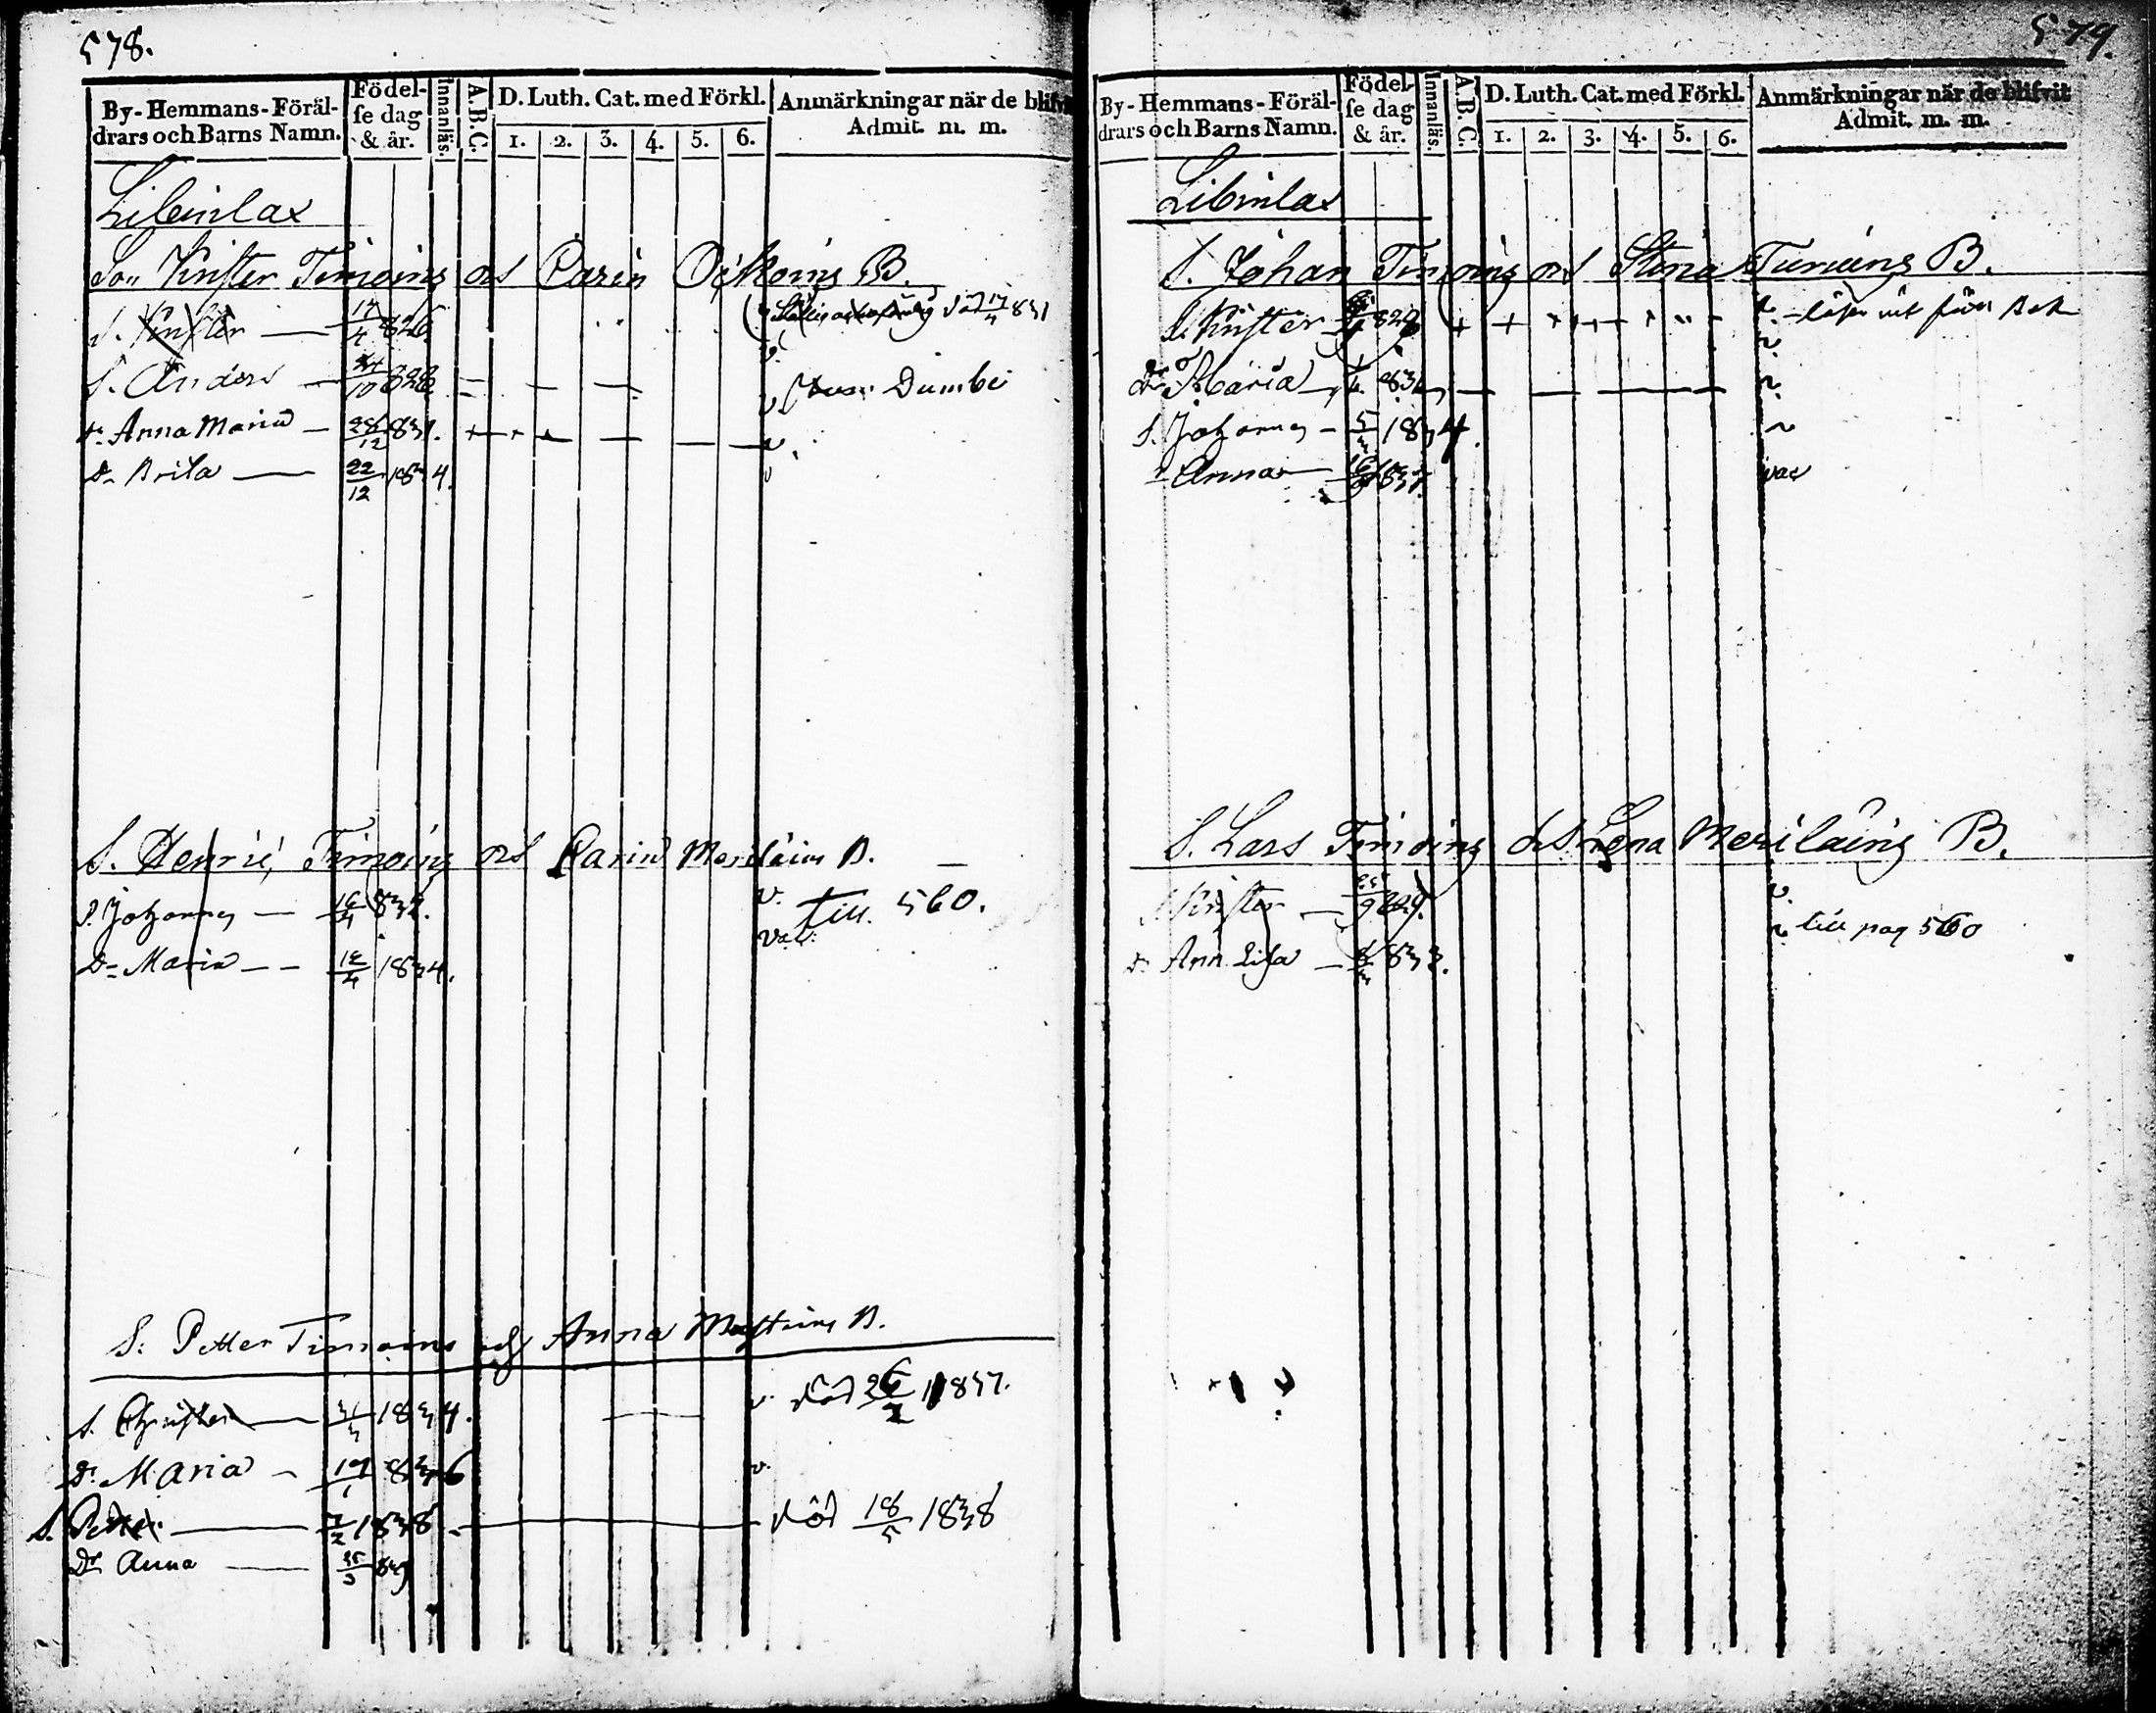 578.
By-Hemmans-Föräl-
drars och Barns Namn.
Födel-
se dag
& år.
Innanläs.
A.B.C.
D. Luth. Cat. med Förkl.
1. 2. 3. 4. 5. 6.
Anmärkningar när de blifvit
Admit. m. m.
Libinlax
Son Krister Timoins och Carin B.
S. Krister — 17/4 826 död 17/4 831
S. Anders — 24/10 828 v. Dumbe
Dr Anna Maria — 28/12 831. v
Dr Brita — 22/12 1834. v
S. Henric Timoins och Carin Meriläins B. —
S. Johannes — 16/4 832. v. till 560.
Dr Maria — — 12/4 1834. vac:
S: Petter Timoins och Anna B.
S. Christer — 1834. v. död 26/2 1837.
Dr Maria — 19/1 836 v.
S. Petter — 7/2 1838 — död 18/5 1838
Dr Anna — 25/5 839
579.
By-Hemmans-Föräl-
drars och Barns Namn.
Födel-
se dag
& år.
Innanläs.
A.B.C.
D. Luth. Cat. med Förkl.
1. 2. 3. 4. 5. 6.
Anmärkningar när de blifvit
Admit. m. m.
Libinlax
S. Johan Timoins och Stina B.
S. Krister 828 v. — läser ut från Bok
Dr Maria v.
S. Johannes — 5/3 1834. v
Anna — 837. vac
S. Lars Timoins och Lena Meriläins B.
S. Krister — 829. v.
Dr Ann Lisa — 833. v. till pag 560